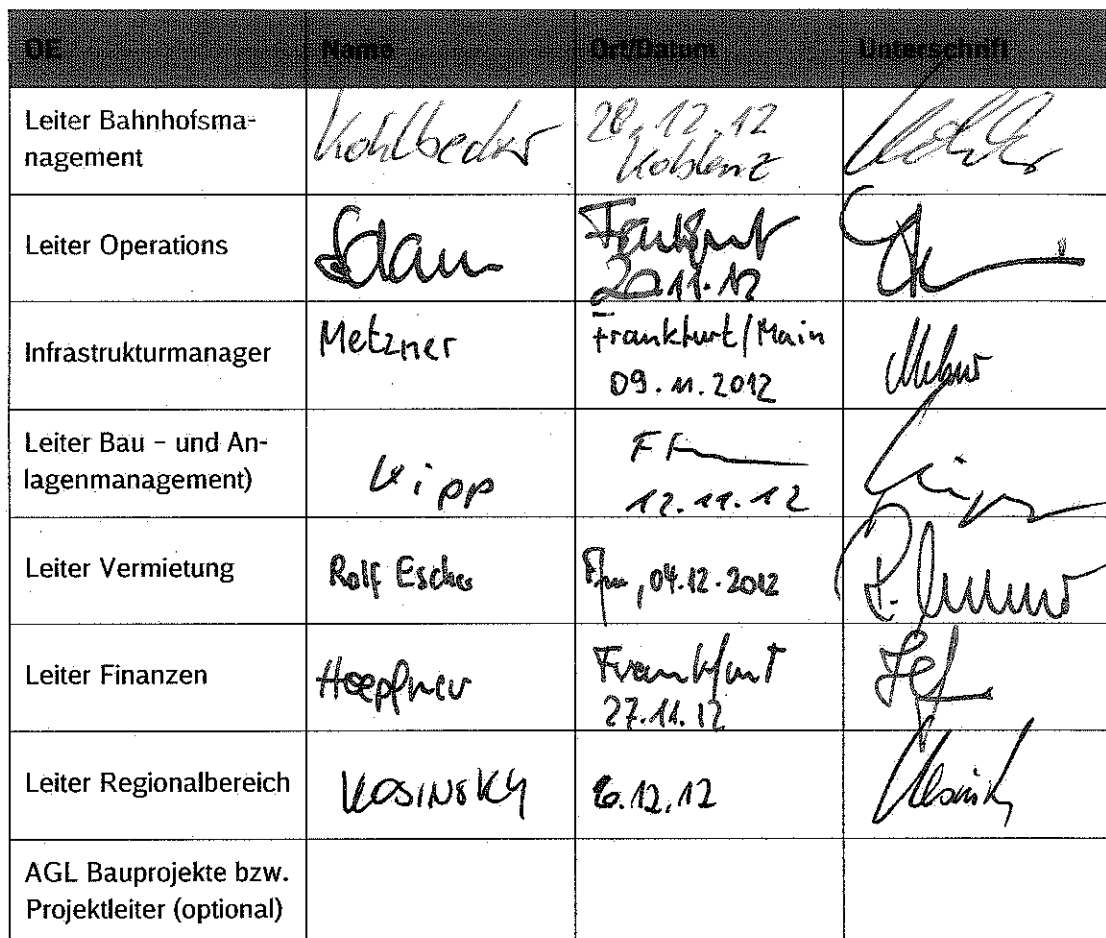 OE Name Ort/Datum Unterschrift
Leiter Bahnhofsma-
nagement
Kohlbecker
28.12.12
Koblenz
Leiter Operations
20.11.12
Infrastrukturmanager
Metzner
Frankfurt/Main
09.11.2012
Leiter Bau – und An-
lagenmanagement)
Kipp
12.11.12
Leiter Vermietung
Rolf Escher
Ffm, 04.12.2012
Leiter Finanzen
Hoepfner
Frankfurt
27.11.12
Leiter Regionalbereich
KOSINSKY
12.12
AGL Bauprojekte bzw.
Projektleiter (optional)